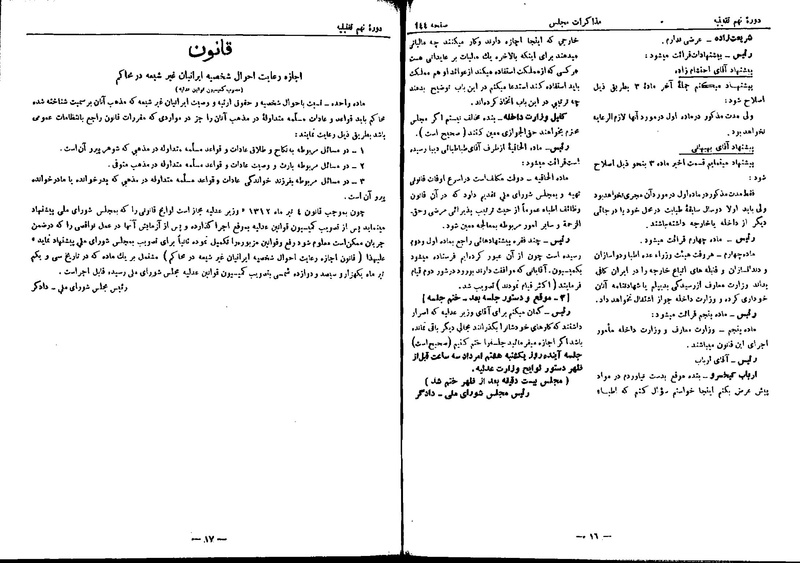 دورهٔ نهم تقنینیه
مذاکرات مجلس
صفحه ۱۴۴
شریعت‌زاده ـ عرضی ندارم.
رئیس ـ پیشنهادات قرائت میشود:
پیشنهاد آقای احتشام زاده
پیشنهاد میکنم جملهٔ آخر مادهٔ ۳ بطریق ذیل
اصلاح شود:
ولی مدت مذکور در ماده اول در مورد آنها لازم‌الرعایه
نخواهد بود.
پیشنهاد آقای بهبهانی
پیشنهاد مینمایم قسمت اخیر ماده ۳ بنحو ذیل اصلاح
شود:
فقط مدت مذکور در ماده اول در مورد آن مجری نخواهد بود
ولی باید اولا دو سال سابقهٔ طبابت در محل خود یا در جائی
دیگر از داخله یا خارجه داشته باشند
رئیس ـ ماده چهارم قرائت میشود.
ماده چهارم ـ هر وقت هیئت وزراء عده اطبا و دواسازان
و دندانسازان و قابله های اتباع خارجه را در ایران کافی
بداند وزارت معارف از رسیدگی بدیپلم یا شهادتنامه آنان
خودداری کرده و وزارت داخله جواز اشتغال نخواهد داد.
رئیس ـ ماده پنجم قرائت میشود:
ماده پنجم ـ وزارت معارف و وزارت داخله مأمور
اجرای این قانون میباشند.
رئیس ـ آقای ارباب
ارباب کیخسرو ـ بنده موقع بدست نیاوردم در مواد
پیش عرض بکنم اینجا خواستم سؤال کنم که اطباء
خارجی که اینجا اجازه دارند و کار میکنند چه مالیاتی
میدهند برای اینکه بالاخره یك مالیات بر عایداتی هست
هر کسی که از مملکت استفاده میکند از عوائد او هم مملکت
باید استفاده کند استدعا میکنم در این باب توضیح بدهند
چه ترتیبی در این باب اتخاذ کرده‌اند.
کفیل وزارت داخله ـ بنده مخالف نیستم اگر مجلس
محترم بخواهند حق‌الجوازی معین کنند (صحیح است).
رئیس ـ ماده الحاقیهٔ از طرف آقای طباطبائی دیبا رسیده
است قرائت میشود:
ماده الحاقیه ـ دولت مکلف است در اسرع اوقات قانونی
تهیه و بمجلس شورای ملی تقدیم دارد که در آن قانون
وظائف اطباء عموماً از حیث ترتیب پذیرائی مرضی و حق
الزحمه و سایر امور مربوطه بمعالجه معین شود.
رئیس ـ چند فقره پیشنهادهائی راجع بماده اول و دوم
رسیده است چون از آن عبور کرده‌ایم فرستاده میشود
بکمیسیون. آقایانی که موافقت دارند بورود در شور دوم قیام
فرمایند (اکثر قیام نمودند) تصویب شد.
[۳ ـ موقع و دستور جلسه بعد ـ ختم جلسه]
رئیس ـ گمان میکنم برای آقای وزیر عدلیه که اصرار
داشتند که کارهای خودشان را بگذرانند مجالی دیگر باقی نمانده
باشد اگر اجازه میفرمائید جلسه را ختم کنیم (صحیح است)
جلسه آینده روز یکشنبه هشتم امرداد سه ساعت قبل از
ظهر دستور لوایح وزارت عدلیه.
(مجلس بیست دقیقه بعد از ظهر ختم شد)
رئیس مجلس شورای ملی ـ دادگر
ـ ۱۶ ـ
دورهٔ نهم تقنینیه
قانون
اجازه رعایت احوال شخصیه ایرانیان غیر شیعه در محاکم
(مصوب کمیسیون قوانین عدلیه)
ماده واحده ـ نسبت باحوال شخصیه و حقوق ارثیه و وصیت ایرانیان غیر شیعه که مذهب آنان برسمیت شناخته شده
محاکم باید قواعد و عادات مسلمه متداولهٔ در مذهب آنان را جز در مواردی که مقررات قانون راجع بانتظامات عمومی
باشد بطریق ذیل رعایت نمایند:
۱ ـ در مسائل مربوطه به نکاح و طلاق عادات و قواعد مسلمه متداوله در مذهبی که شوهر پیرو آن است.
۲ ـ در مسائل مربوطه بارث و وصیت عادات و قواعد مسلمه متداوله در مذهب متوفی.
۳ ـ در مسائل مربوطه بفرزند خواندگی عادات و قواعد مسلمه متداوله در مذهبی که پدر خوانده یا مادر خوانده
پیرو آن است.
چون بموجب قانون ۴ تیر ماه ۱۳۱۲ «وزیر عدلیه مجاز است لوایح قانونی را که بمجلس شورای ملی پیشنهاد
مینماید پس از تصویب کمیسیون قوانین عدلیه بموقع اجرا گذارده و پس از آزمایش آنها در عمل نواقصی را که در ضمن
جریان ممکن است معلوم شود رفع و قوانین مزبوره را تکمیل نموده ثانیاً برای تصویب بمجلس شورای ملی پیشنهاد نماید»
علیهذا (قانون اجازه رعایت احوال شخصیه ایرانیان غیر شیعه در محاکم) مشتمل بر یك ماده که در تاریخ سی و یکم
تیر ماه یکهزار و سیصد و دوازده شمسی بتصویب کمیسیون قوانین عدلیه مجلس شورای ملی رسیده، قابل اجرا است.
رئیس مجلس شورای ملی ـ دادگر
ـ ۱۷ ـ